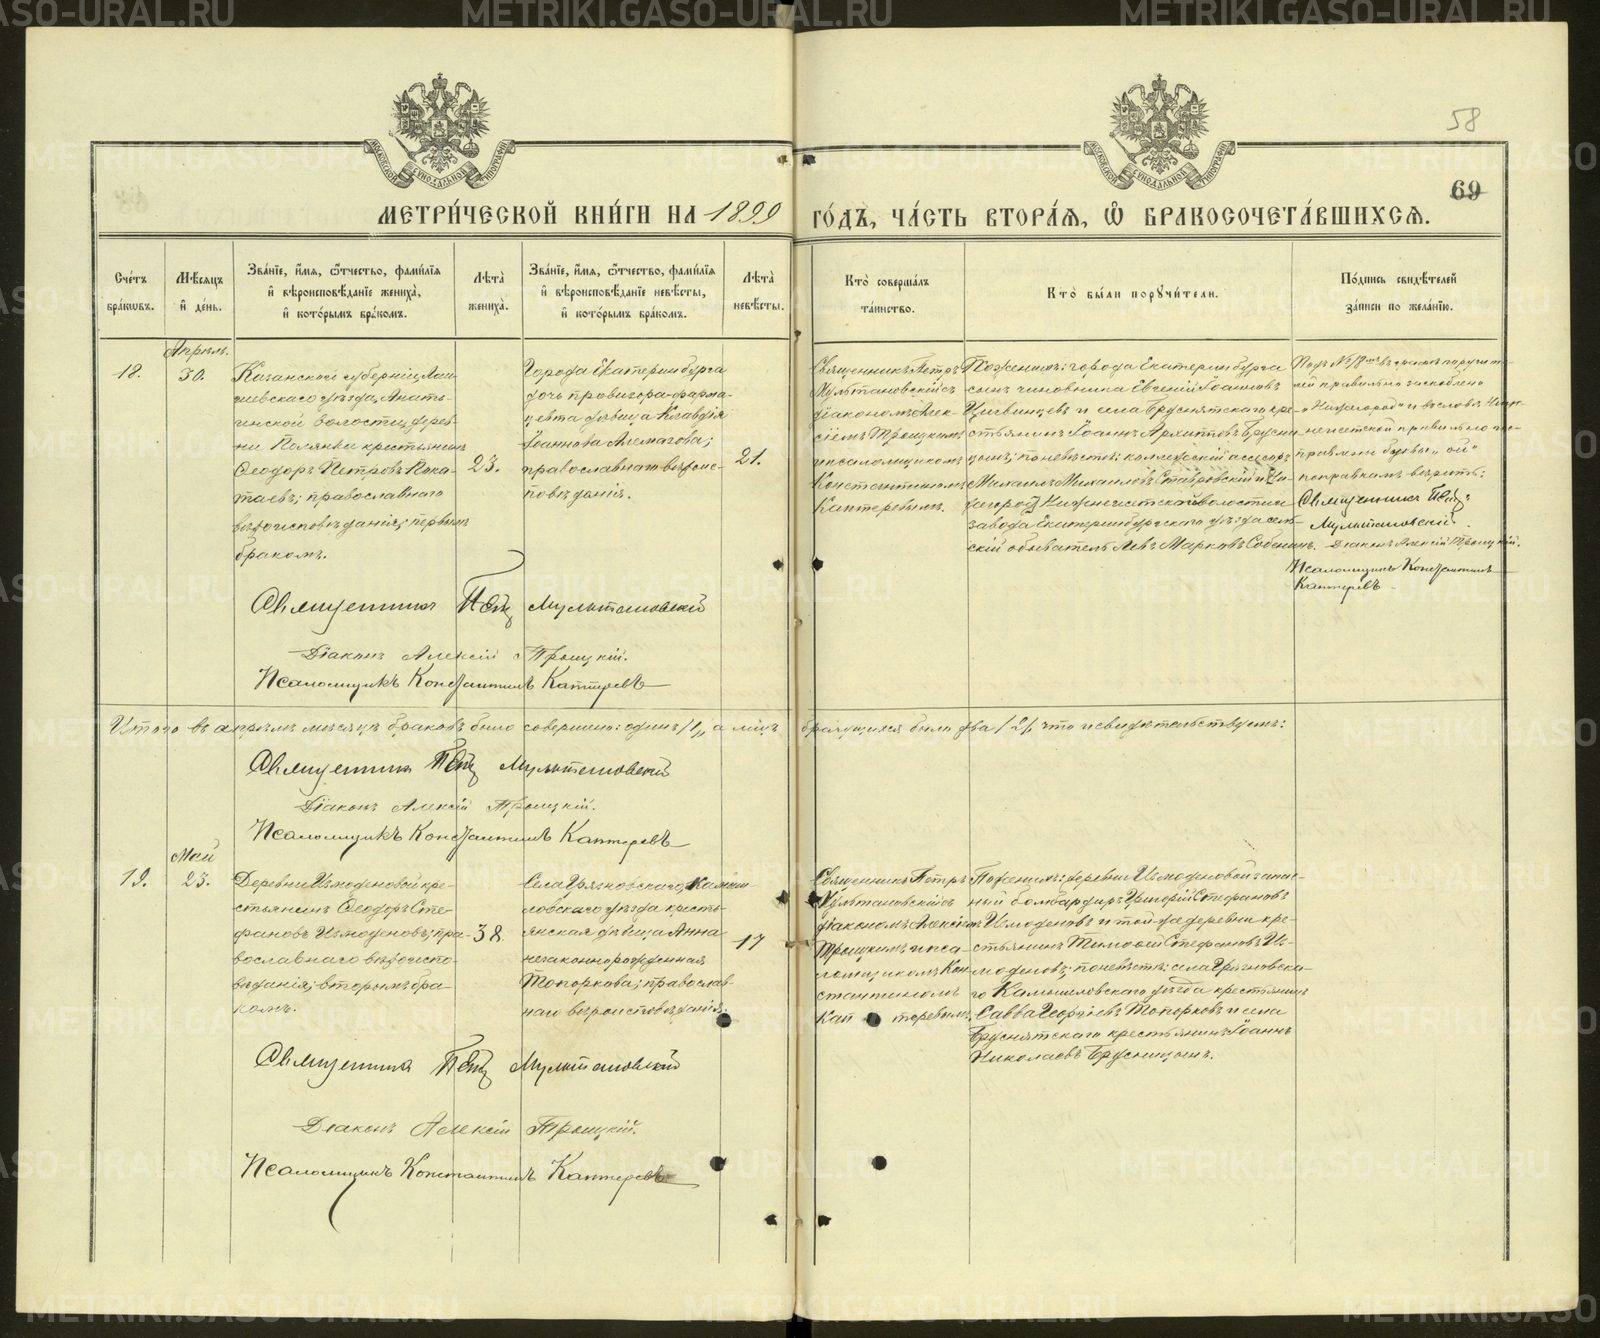 METRIKI.GASO-URAL.RU
58
69
МЕТРИ́ЧЕСКОЙ КНИ́ГИ НА 1899 ГО́ДЪ, ЧА́СТЬ ВТОРА́Я, Ѽ БРАКОСОЧЕТА́ВШИХСЯ.
Сче́тъ бра́ковъ.
Мѣ́сяцъ и҆ де́нь.
Зва́нїе, и҆́мя, ѻ҆́тчество, фами́лїя
и҆ вѣроисповѣ́данїе жениха̀,
и҆ кото́рымъ бра́комъ.
Лѣ́та жениха̀.
Зва́нїе, и҆́мя, ѻ҆́тчество, фами́лїя
и҆ вѣроисповѣ́данїе невѣ́сты,
и҆ кото́рымъ бра́комъ.
Лѣ́та невѣ́сты.
Кто̀ соверша́лъ та́инство.
Кто̀ бы́ли порꙋчи́тели.
По́дпись свидѣ́телей за́писи по жела́нїю.
18.
Апрѣль.
30.
Казанской губерніи, Лаи-
шевскаго уѣзда, Анать-
инской волости, дерев-
ни Полянки крестьянинъ
Ѳеодоръ Петровъ Пока-
таевъ; православнаго
вѣроисповѣданія; первымъ
бракомъ.
23.
Города Екатеринбурга
дочь провизора-фарма-
цевта дѣвица Клавдія
Іоаннова Алемасова;
православнаго вѣроис-
повѣданія.
21.
Священникъ Петръ
Мультановскій съ
діакономъ Алек-
сіемъ Троицкимъ
и псаломщикомъ
Константиномъ
Каптеревымъ.
По женихѣ: города Екатеринбурга
сынъ чиновника Евгеній Іоанновъ
и села Бруснятскаго кре-
стьянинъ Іоаннъ Архиповъ Брусни-
цынъ; по невѣстѣ: коллежскій ассесоръ
Михаилъ Михаиловъ Ставровскій и
волости
завода Екатеринбургскаго уѣзда сель-
скій обыватель Левъ Марковъ Собенинъ.
Подъ № 18мъ въ графѣ поручите-
лей правильно заскоблено
и въ словѣ Ниж-
неисетской правильно по-
правлены буквы „ой“
поправкамъ вѣрить:
Священникъ Петръ
Мультановскій.
Діаконъ Алексій Троицкій.
Псаломщикъ Константинъ
Каптеревъ
Священникъ Петръ Мультановскій
Діаконъ Алексій Троицкій.
Псаломщикъ Константинъ Каптеревъ
Итого въ апрѣлѣ мѣсяцѣ браковъ было совершено: одинъ /1/, а лицъ брачущихся было два /2/, что и свидѣтельствуемъ:
Священникъ Петръ Мультановскій
Діаконъ Алексій Троицкій.
Псаломщикъ Константинъ Каптеревъ
19.
Май
23.
Деревни Измоденовой кре-
стьянинъ Ѳеодоръ Сте-
фановъ Измоденовъ; пра-
вославнаго вѣроиспо-
вѣданія; вторымъ бра-
комъ.
38.
Села Грязновскаго Камыш-
ловскаго уѣзда кресть-
янская дѣвица Анна
незаконнорожденная
Топоркова; православ-
наго вѣроисповѣданія.
17
Священникъ Петръ
Мультановскій съ
діакономъ Алексіемъ
Троицкимъ и пса-
ломщикомъ Кон-
стантиномъ
Каптеревымъ.
По женихѣ: деревни Измоденовой запас-
ный бомбардиръ Григорій Стефановъ
Измоденовъ и той-же деревни кре-
стьянинъ Тимоѳей Стефановъ Из-
моденовъ; по невѣстѣ: села Грязновска-
го Камышловскаго уѣзда крестьянинъ
Савва Георгіевъ Топорковъ и села
Бруснятскаго крестьянинъ Іоаннъ
Николаевъ Брусницынъ.
Священникъ Петръ Мультановскій
Діаконъ Алексій Троицкій.
Псаломщикъ Константинъ Каптеревъ